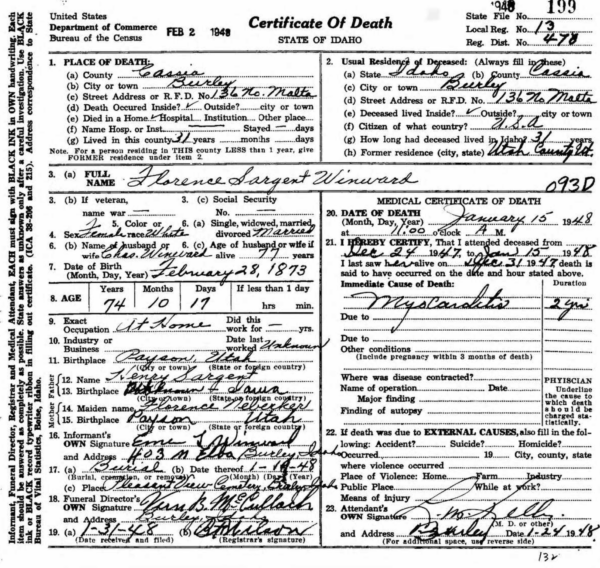 United States
Department of Commerce
Bureau of the Census
FEB 2 1948
Certificate Of Death
STATE OF IDAHO
1948
State File No. 199
Local Reg. No. 13
Reg. Dist. No. 470
Informant, Funeral Director, Registrar and Medical Attendant, EACH must sign with BLACK INK in OWN handwriting. Each item should be answered as completely as possible. State answers as unknown only after a careful investigation. Use BLACK ink or BLACK record typewriter ribbon in filling out certificate. (ICA 38-208 and 215). Address correspondence to State Bureau of Vital Statistics, Boise, Idaho.
1. PLACE OF DEATH:
(a) County Cassia
(b) City or town Burley
(c) Street Address or R.F.D. No. 136 No. Malta
(d) Death Occured Inside? ✓ Outside? city or town
(e) Died in a Home ✓ Hospital Institution Other place
(f) Name Hosp. or Inst. — Stayed — days
(g) Lived in this county 31 years months days
Note. For a person residing in THIS county LESS than 1 year, give FORMER residence under item 2.
2. Usual Residence of Deceased: (Always fill in these)
(a) State Idaho (b) County Cassia
(c) City or town Burley
(d) Street Address or R.F.D. No. 136 No. Malta
(e) Deceased lived Inside? ✓ Outside? city or town
(f) Citizen of what country? U.S.A
(g) How long had deceased lived in Idaho? 31 years
(h) Former residence (city, state) Utah County Ut.
3. (a) FULL NAME Florence Sargent Winward
093D
3. (b) If veteran, name war —
3. (c) Social Security No. —
4. Sex Female 5. Color or race White
6. (a) Single, widowed, married, divorced Married
6. (b) Name of husband or wife Chas. Winward
6. (c) Age of husband or wife if alive 77 years
7. Date of Birth (Month, Day, Year) February 28, 1873
8. AGE Years 74 Months 10 Days 17 If less than 1 day hrs. min.
9. Exact Occupation At Home Did this work for — yrs.
10. Industry or Business Date last worked Unknown
11. Birthplace Payson, Utah
(City or town) (State or foreign country)
Father
12. Name Sargent
13. Birthplace
(City or town) (State or foreign country)
Mother
14. Maiden name Florence
15. Birthplace Payson Utah
(City or town) (State or foreign country)
16. Informant's OWN Signature Winward
and Address 403 N Elba Burley Idaho
17. (a) Burial (b) Date thereof -48
(Burial, cremation, or removal) (Month) (Day) (Year)
(c) Place Pleasant View Cemetery, Burley, Idaho
18. Funeral Director's OWN Signature B. McCulloch
and Address Burley
19. (a) 1-31-48 (b) Wilson
(Date received and filed) (Registrar's signature)
MEDICAL CERTIFICATE OF DEATH
20. DATE OF DEATH (Month, Day, Year) January 15 1948
o'clock A M.
21. I HEREBY CERTIFY, That I attended deceased from
Dec 24 1947, to Jan 15 1948
I last saw her alive on Dec 31 1947 death is
said to have occurred on the date and hour stated above.
Immediate Cause of Death: Duration
Myocarditis 2 yrs
Due to
Due to
Other conditions
(Include pregnancy within 3 months of death)
Where was disease contracted?
Name of operation Date
Major finding
Finding of autopsy
PHYSICIAN
Underline the cause to which death should be charged statistically.
22. If death was due to EXTERNAL CAUSES, also fill in the following: Accident? Suicide? Homicide?
Occurred 19 City, county, state
where violence occurred
Place of Violence: Home Farm Industry
Public Place While at work?
Means of injury
23. Attendant's OWN Signature
(M. D. or other)
and Address Burley Date 1-24 1948
(For additional space, use reverse side)
132